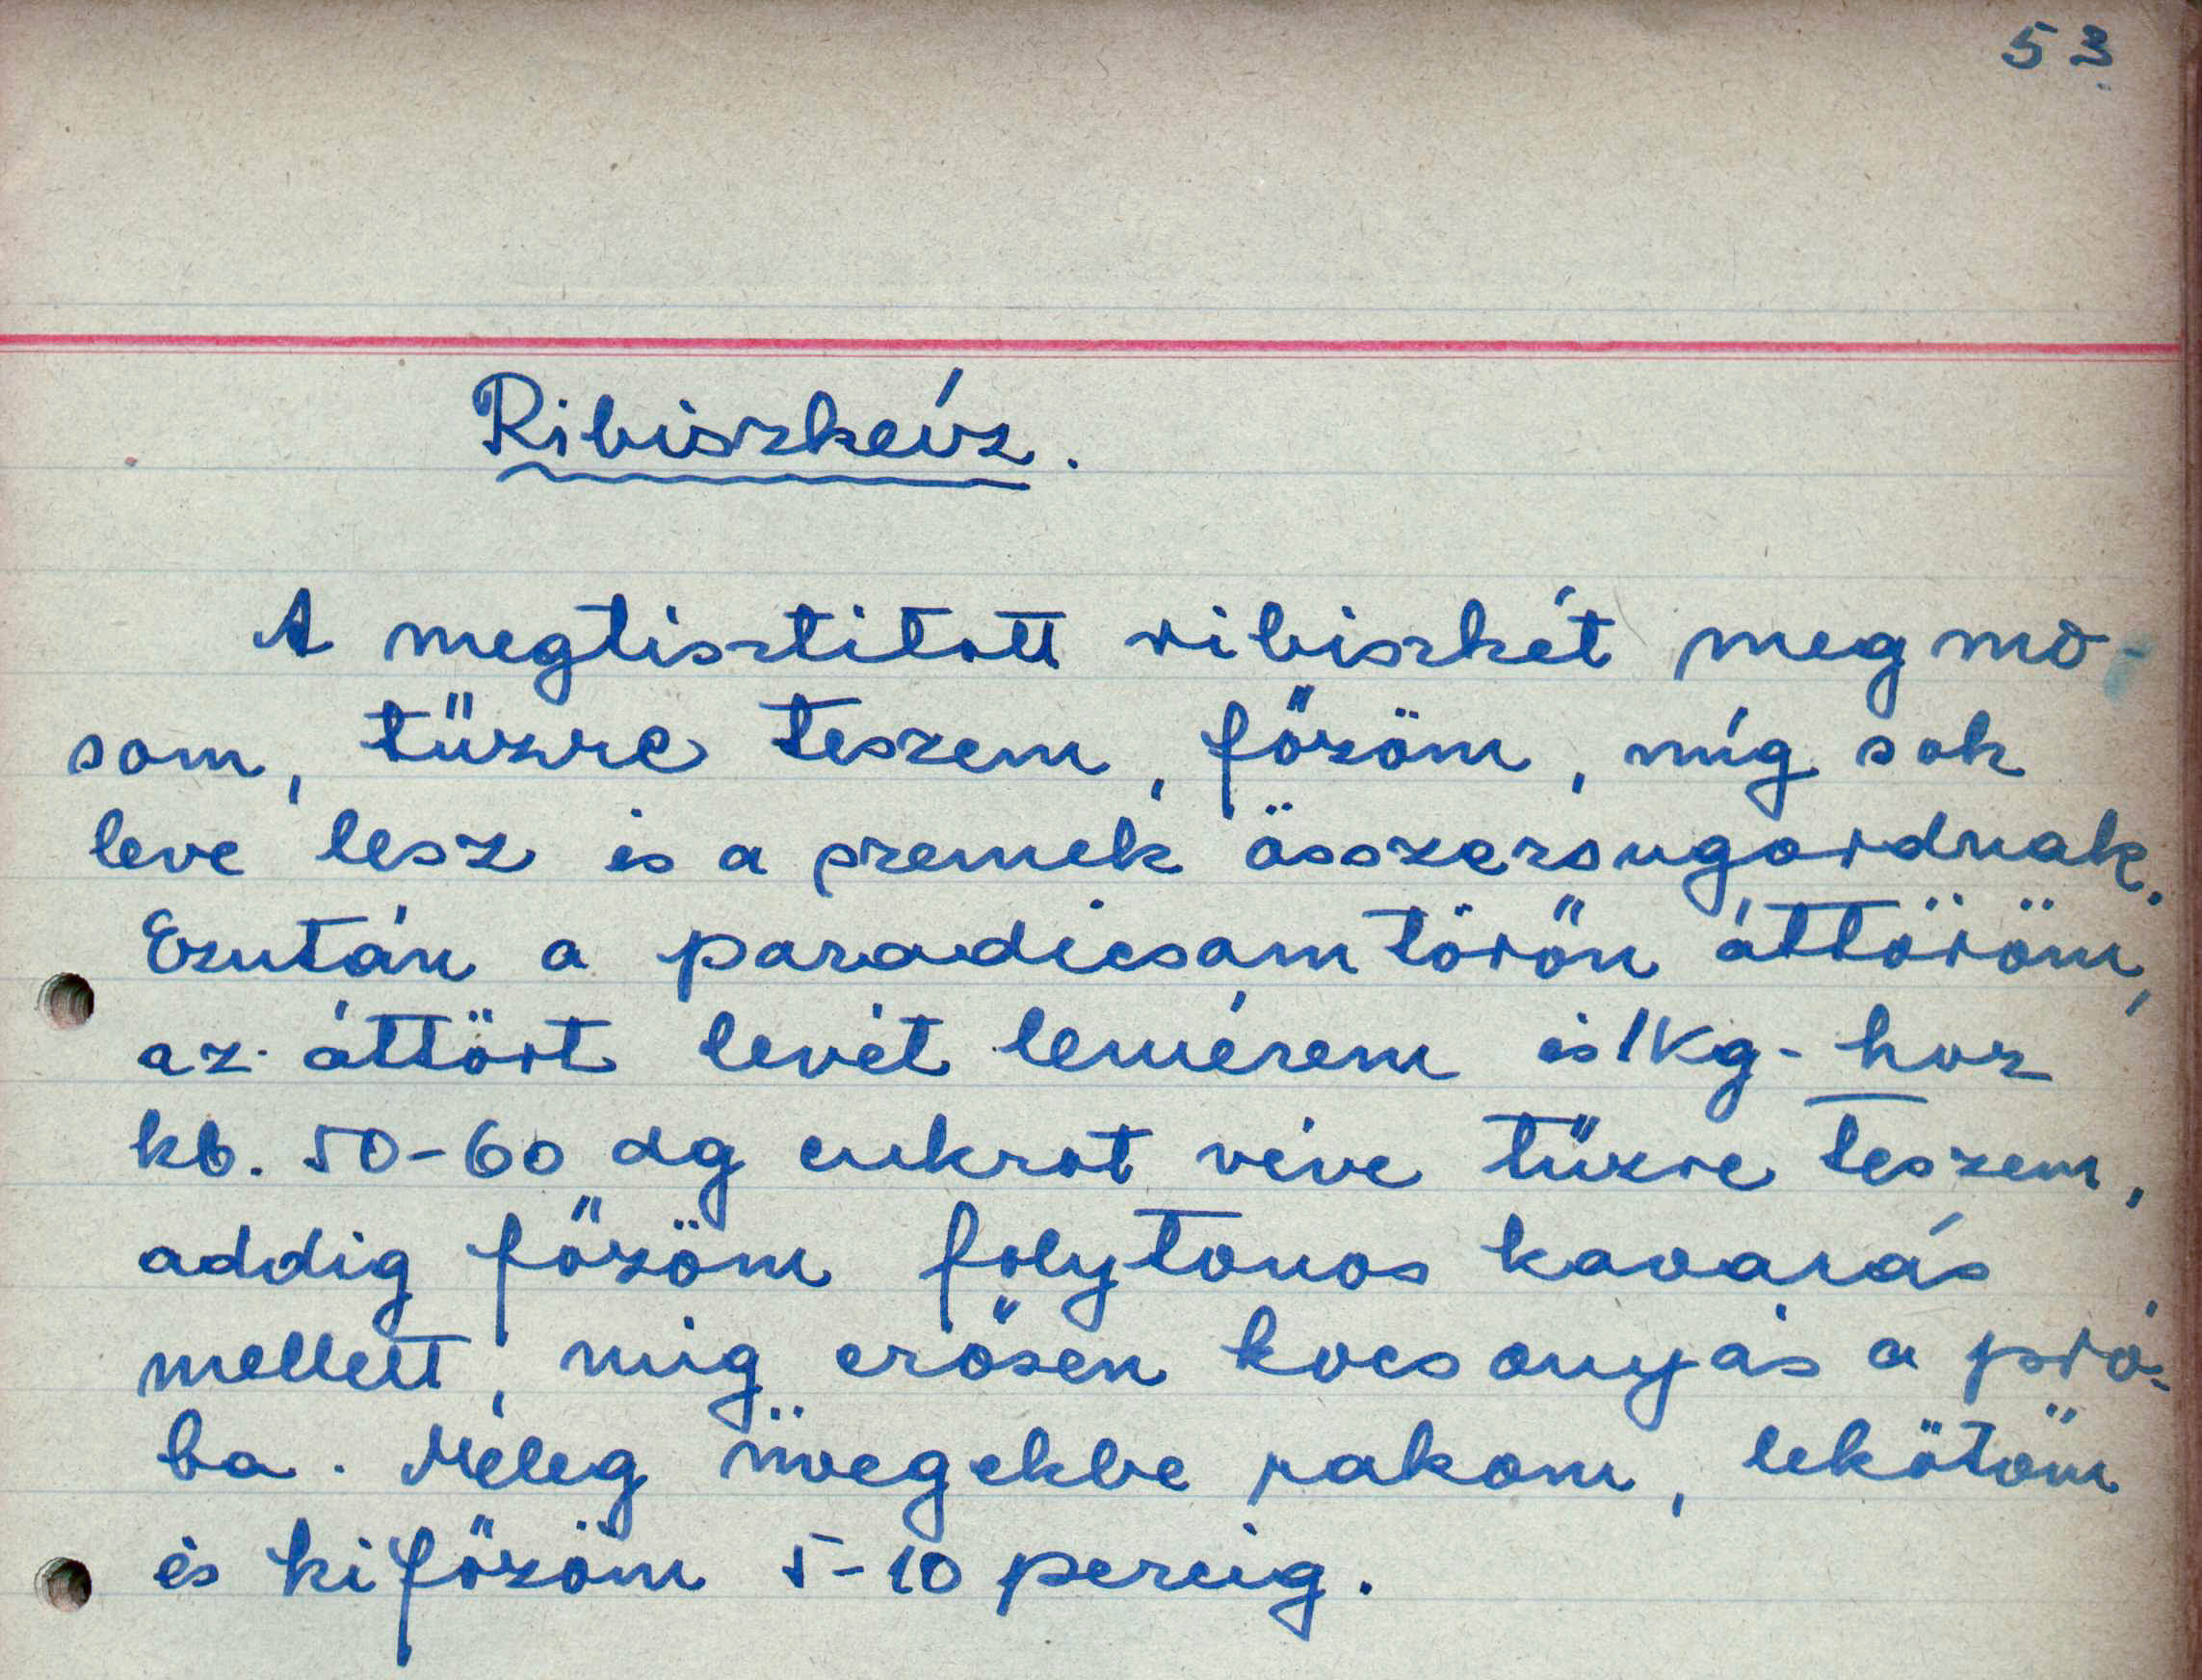 53.
Ribiszkeíz.
A megtisztitott ribiszkét megmo-
som, tűzre teszem, főzöm, míg sok
leve lesz és a szemek összezsugordnak.
Ezután a paradicsomtörőn áttöröm,
az áttört levét lemérem és 1 Kg-hoz
kb. 50-60 dg cukrot véve tűzre teszem,
addig főzöm folytonos kavarás
mellett, míg erősen kocsonyás a pró-
ba. Meleg üvegekbe rakom, lekötöm
és kifőzöm 5-10 percig.